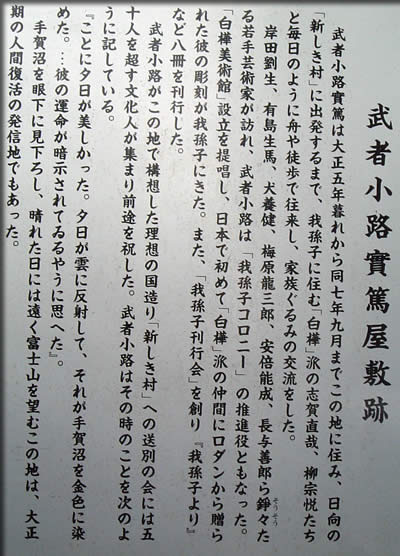 武者小路實篤屋敷跡
武者小路實篤は大正五年暮れから同七年九月までこの地に住み、日向の
「新しき村」に出発するまで、我孫子に住む「白樺」派の志賀直哉、柳宗悦たち
と毎日のように舟や徒歩で往来し、家族ぐるみの交流をした。
岸田劉生、有島生馬、犬養健、梅原龍三郎、安倍能成、長与善郎ら錚々た
そうそう
る若手芸術家が訪れ、武者小路は「我孫子コロニー」の推進役ともなった。
「白樺美術館」設立を提唱し、日本で初めて「白樺」派の仲間にロダンから贈ら
れた彼の彫刻が我孫子にきた。また、「我孫子刊行会」を創り『我孫子より』
など八冊を刊行した。
武者小路がこの地で構想した理想の国造り「新しき村」への送別の会には五
十人を超す文化人が集まり前途を祝した。武者小路はその時のことを次のよ
うに記している。
『ことに夕日が美しかった。夕日が雲に反射して、それが手賀沼を金色に染
めた。…彼の運命が暗示されてゐるやうに思へた』。
手賀沼を眼下に見下ろし、晴れた日には遠く富士山を望むこの地は、大正
期の人間復活の発信地でもあった。